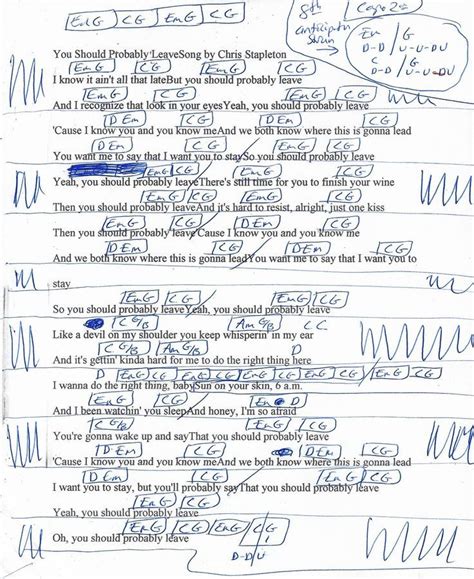 Em G C G Em G C G
8th anticipation strum
Capo 2
Em / G
D-D / U-U-DU
C / G
D-D / U-U-DU
You Should Probably LeaveSong by Chris Stapleton
Em G C G Em G C G
I know it ain't all that lateBut you should probably leave
Em G C G Em G C G
And I recognize that look in your eyesYeah, you should probably leave
D Em C G
'Cause I know you and you know meAnd we both know where this is gonna lead
D Em C G
You want me to say that I want you to staySo you should probably leave
Em G C G
Yeah, you should probably leaveThere's still time for you to finish your wine
Em G C G Em G C G
Then you should probably leaveAnd it's hard to resist, alright, just one kiss
Em G C G D Em
Then you should probably leave'Cause I know you and you know me
C G D Em
And we both know where this is gonna leadYou want me to say that I want you to
C G
stay
Em G C G Em G C G
So you should probably leaveYeah, you should probably leave
C G/B Am G/B C G
Like a devil on my shoulder you keep whisperin' in my ear
C G/B Am G/B
And it's gettin' kinda hard for me to do the right thing here
D Em G C G Em G C G Em G C G Em G C G
I wanna do the right thing, babySun on your skin, 6 a.m.
Em G C G Em D
And I been watchin' you sleepAnd honey, I'm so afraid
C G/B
You're gonna wake up and sayThat you should probably leave
D Em C G D Em C G
'Cause I know you and you know meAnd we both know where this is gonna lead
D Em C G
I want you to stay, but you'll probably sayThat you should probably leave
Em G C G
Yeah, you should probably leave
Em G C G Em G C G
Oh, you should probably leave
D-D U